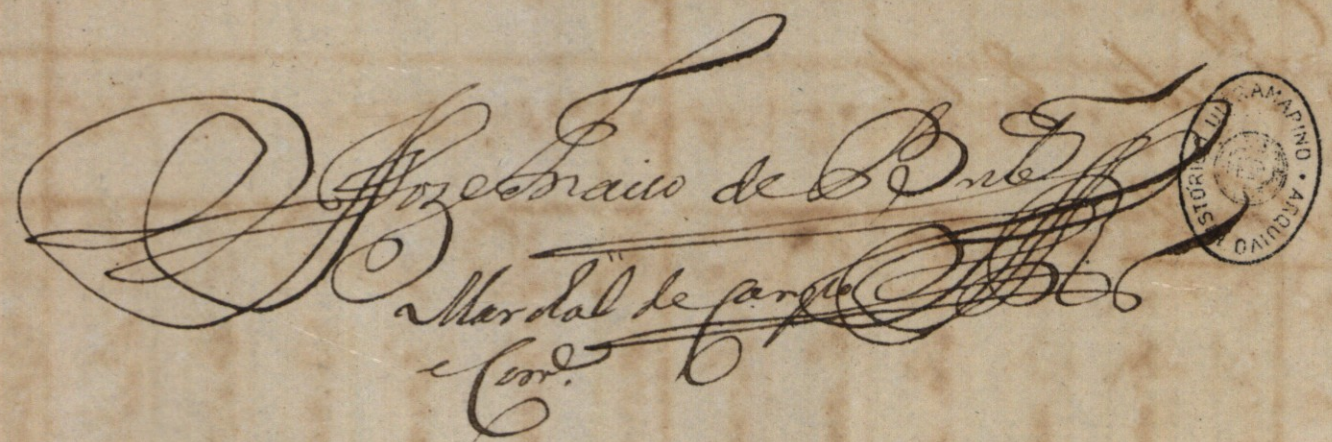 Joze Ignacio de
Marchal de Campo
e Com.^e
ARQUIVO HISTÓRICO ULTRAMARINO